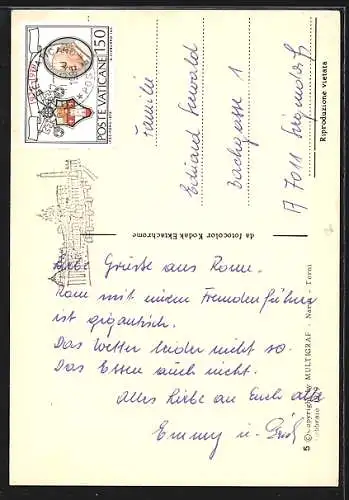 POSTE VATICANE 150
Familie
Eduard Seewald
Bachgasse 1
A 7011 Siegendorf
Riproduzione vietata
da fotocolor Kodak Ektachrome
Liebe Grüsse aus Rom.
Rom mit einem Fremdenführer
ist gigantisch.
Das Wetter leider nicht so.
Das Essen auch nicht.
Alles Liebe an Euch alle
Emmy u.
5 © copyright by MULTIGRAF - Narni - Terni